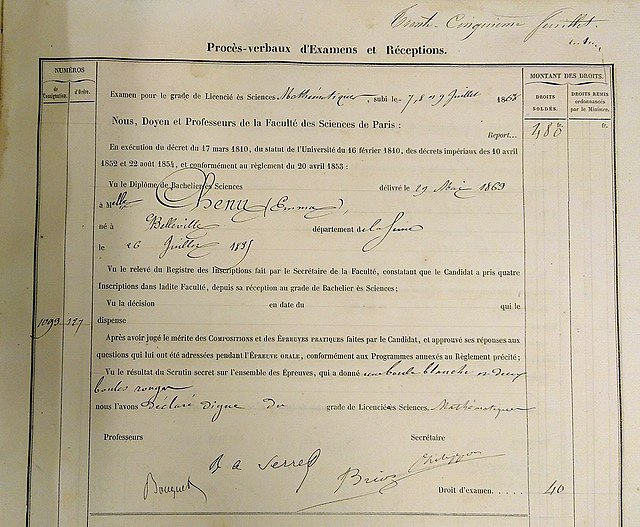 Trente-Cinquième feuillet
Procès-verbaux d'Examens et Réceptions.
NUMÉROS
de Consignation. d'Ordre.
MONTANT DES DROITS.
DROITS SOLDÉS. DROITS REMIS ordonnancés par le Ministre.
Examen pour le grade de Licencié ès Sciences Mathématiques, subi le 7, 8 et 9 Juillet 1868
Nous, Doyen et Professeurs de la Faculté des Sciences de Paris :
Report... 480 fr. fr.
En exécution du décret du 17 mars 1810, du statut de l'Université du 16 février 1810, des décrets impériaux des 10 avril
1852 et 22 août 1854, et conformément au règlement du 20 avril 1853 :
Vu le Diplôme de Bachelier ès Sciences délivré le 29 Mai 1863
à Melle Chenu (Emma),
né à Belleville département de la Seine
le 26 Juillet 1835
Vu le relevé du Registre des Inscriptions fait par le Secrétaire de la Faculté, constatant que le Candidat a pris quatre
Inscriptions dans ladite Faculté, depuis sa réception au grade de Bachelier ès Sciences ;
Vu la décision en date du qui le
dispense
1093 127
Après avoir jugé le mérite des COMPOSITIONS et des ÉPREUVES PRATIQUES faites par le Candidat, et approuvé ses réponses aux
questions qui lui ont été adressées pendant l'ÉPREUVE ORALE, conformément aux Programmes annexés au Règlement précité ;
Vu le résultat du Scrutin secret sur l'ensemble des Épreuves, qui a donné une boule blanche et deux
boules rouges
nous l'avons Déclaré digne du grade de Licenciée ès Sciences, Mathématiques
Professeurs Secrétaire
J A Serret
Bouquet Briot Philippon
Droit d'examen..... 40